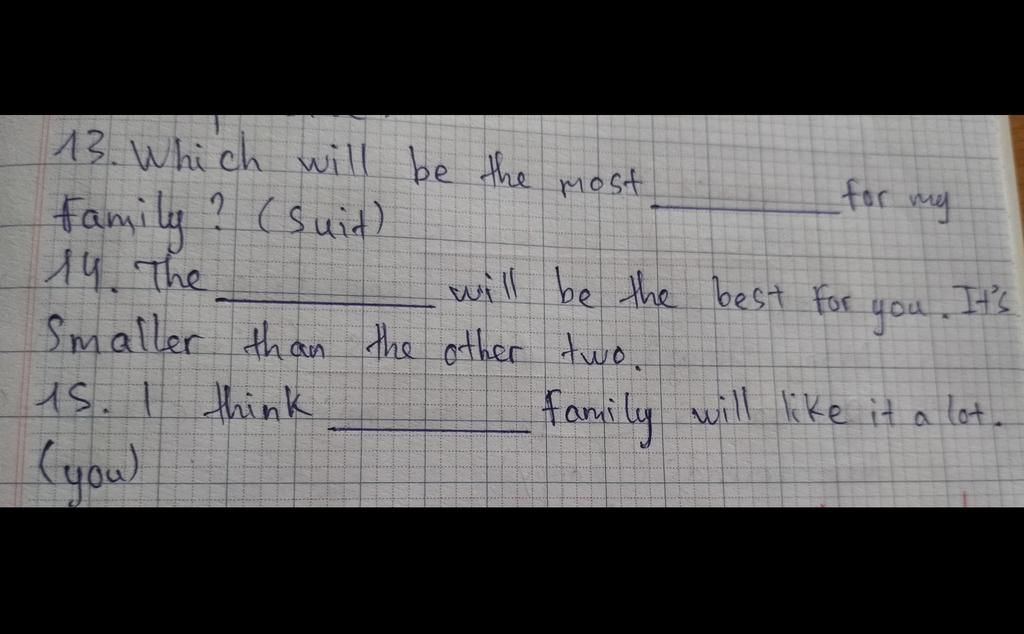 13. Which will be the most __________ for my
family? (Suit)
14. The __________ will be the best for you. It's
Smaller than the other two.
15. I think __________ family will like it a lot.
(you)